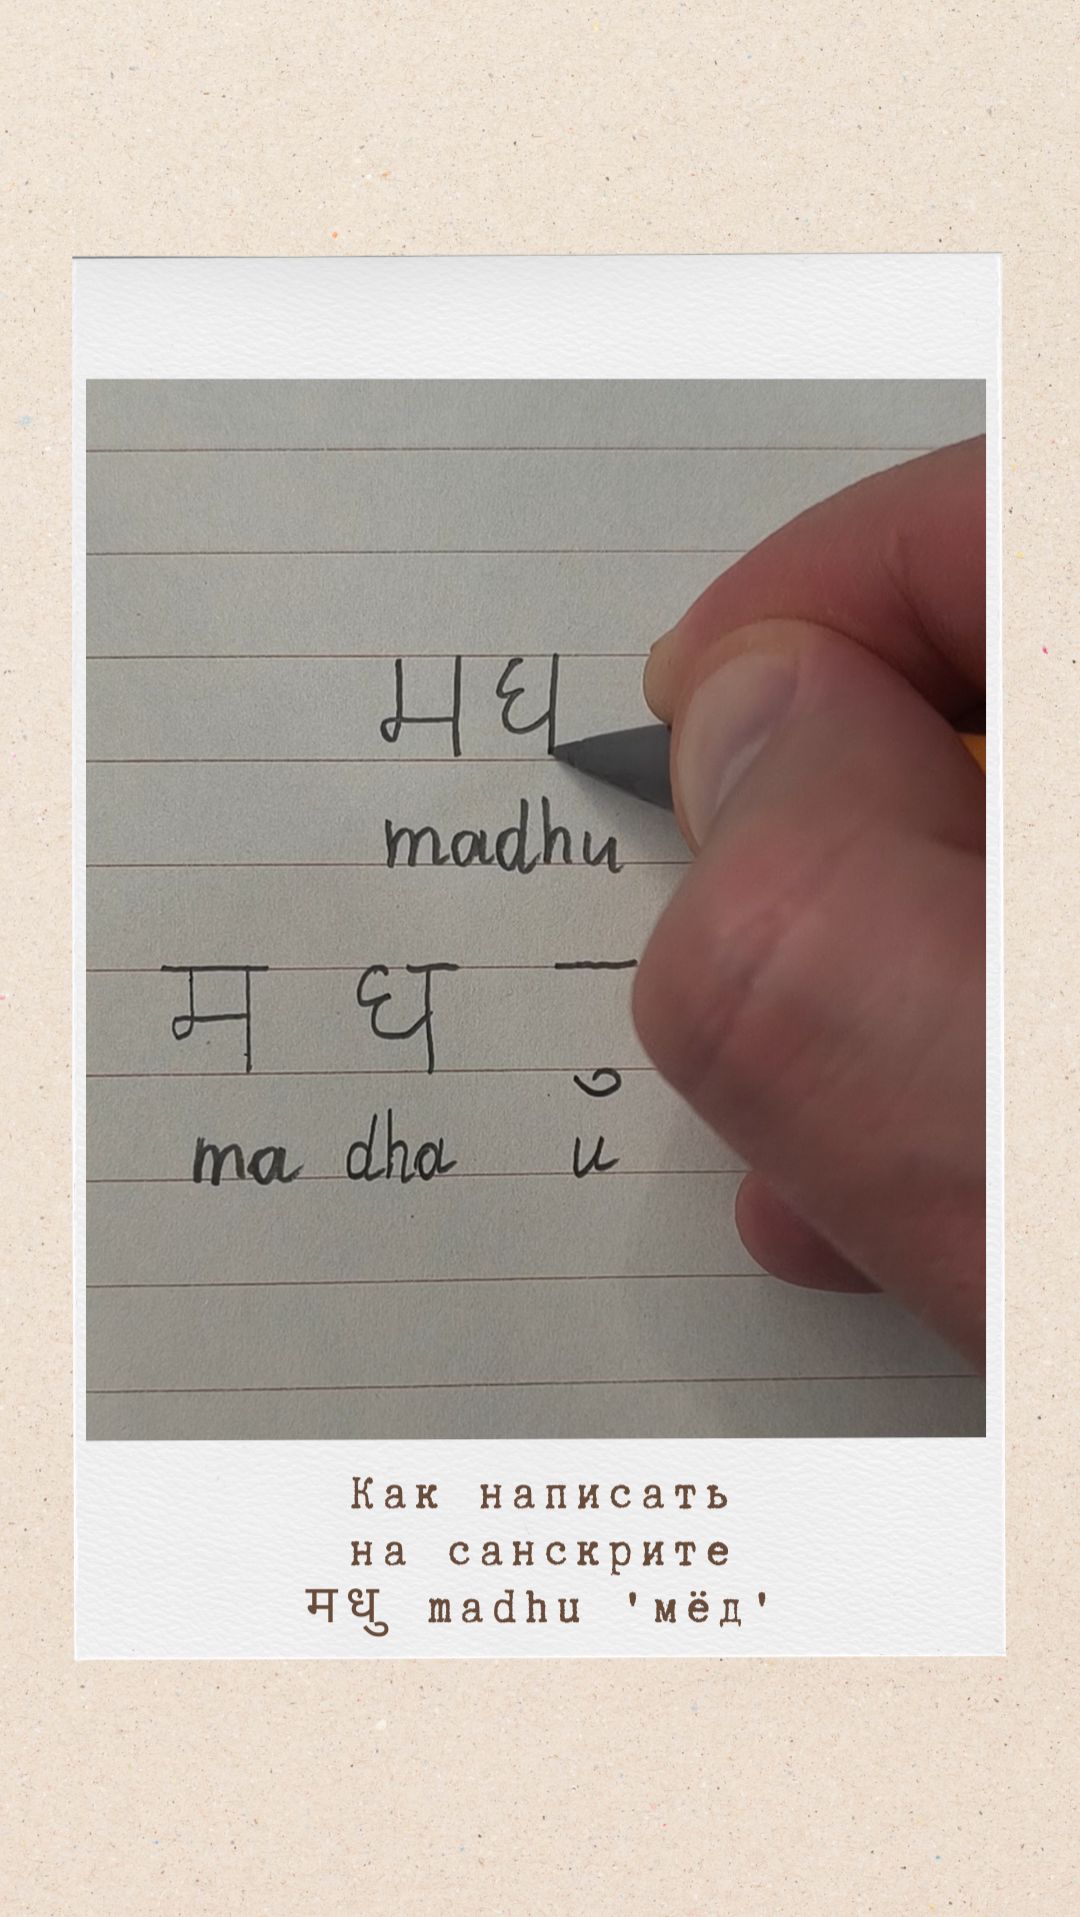 मध
madhu
म ध ु
ma dha u
Как написать
на санскрите
मधु madhu 'мёд'